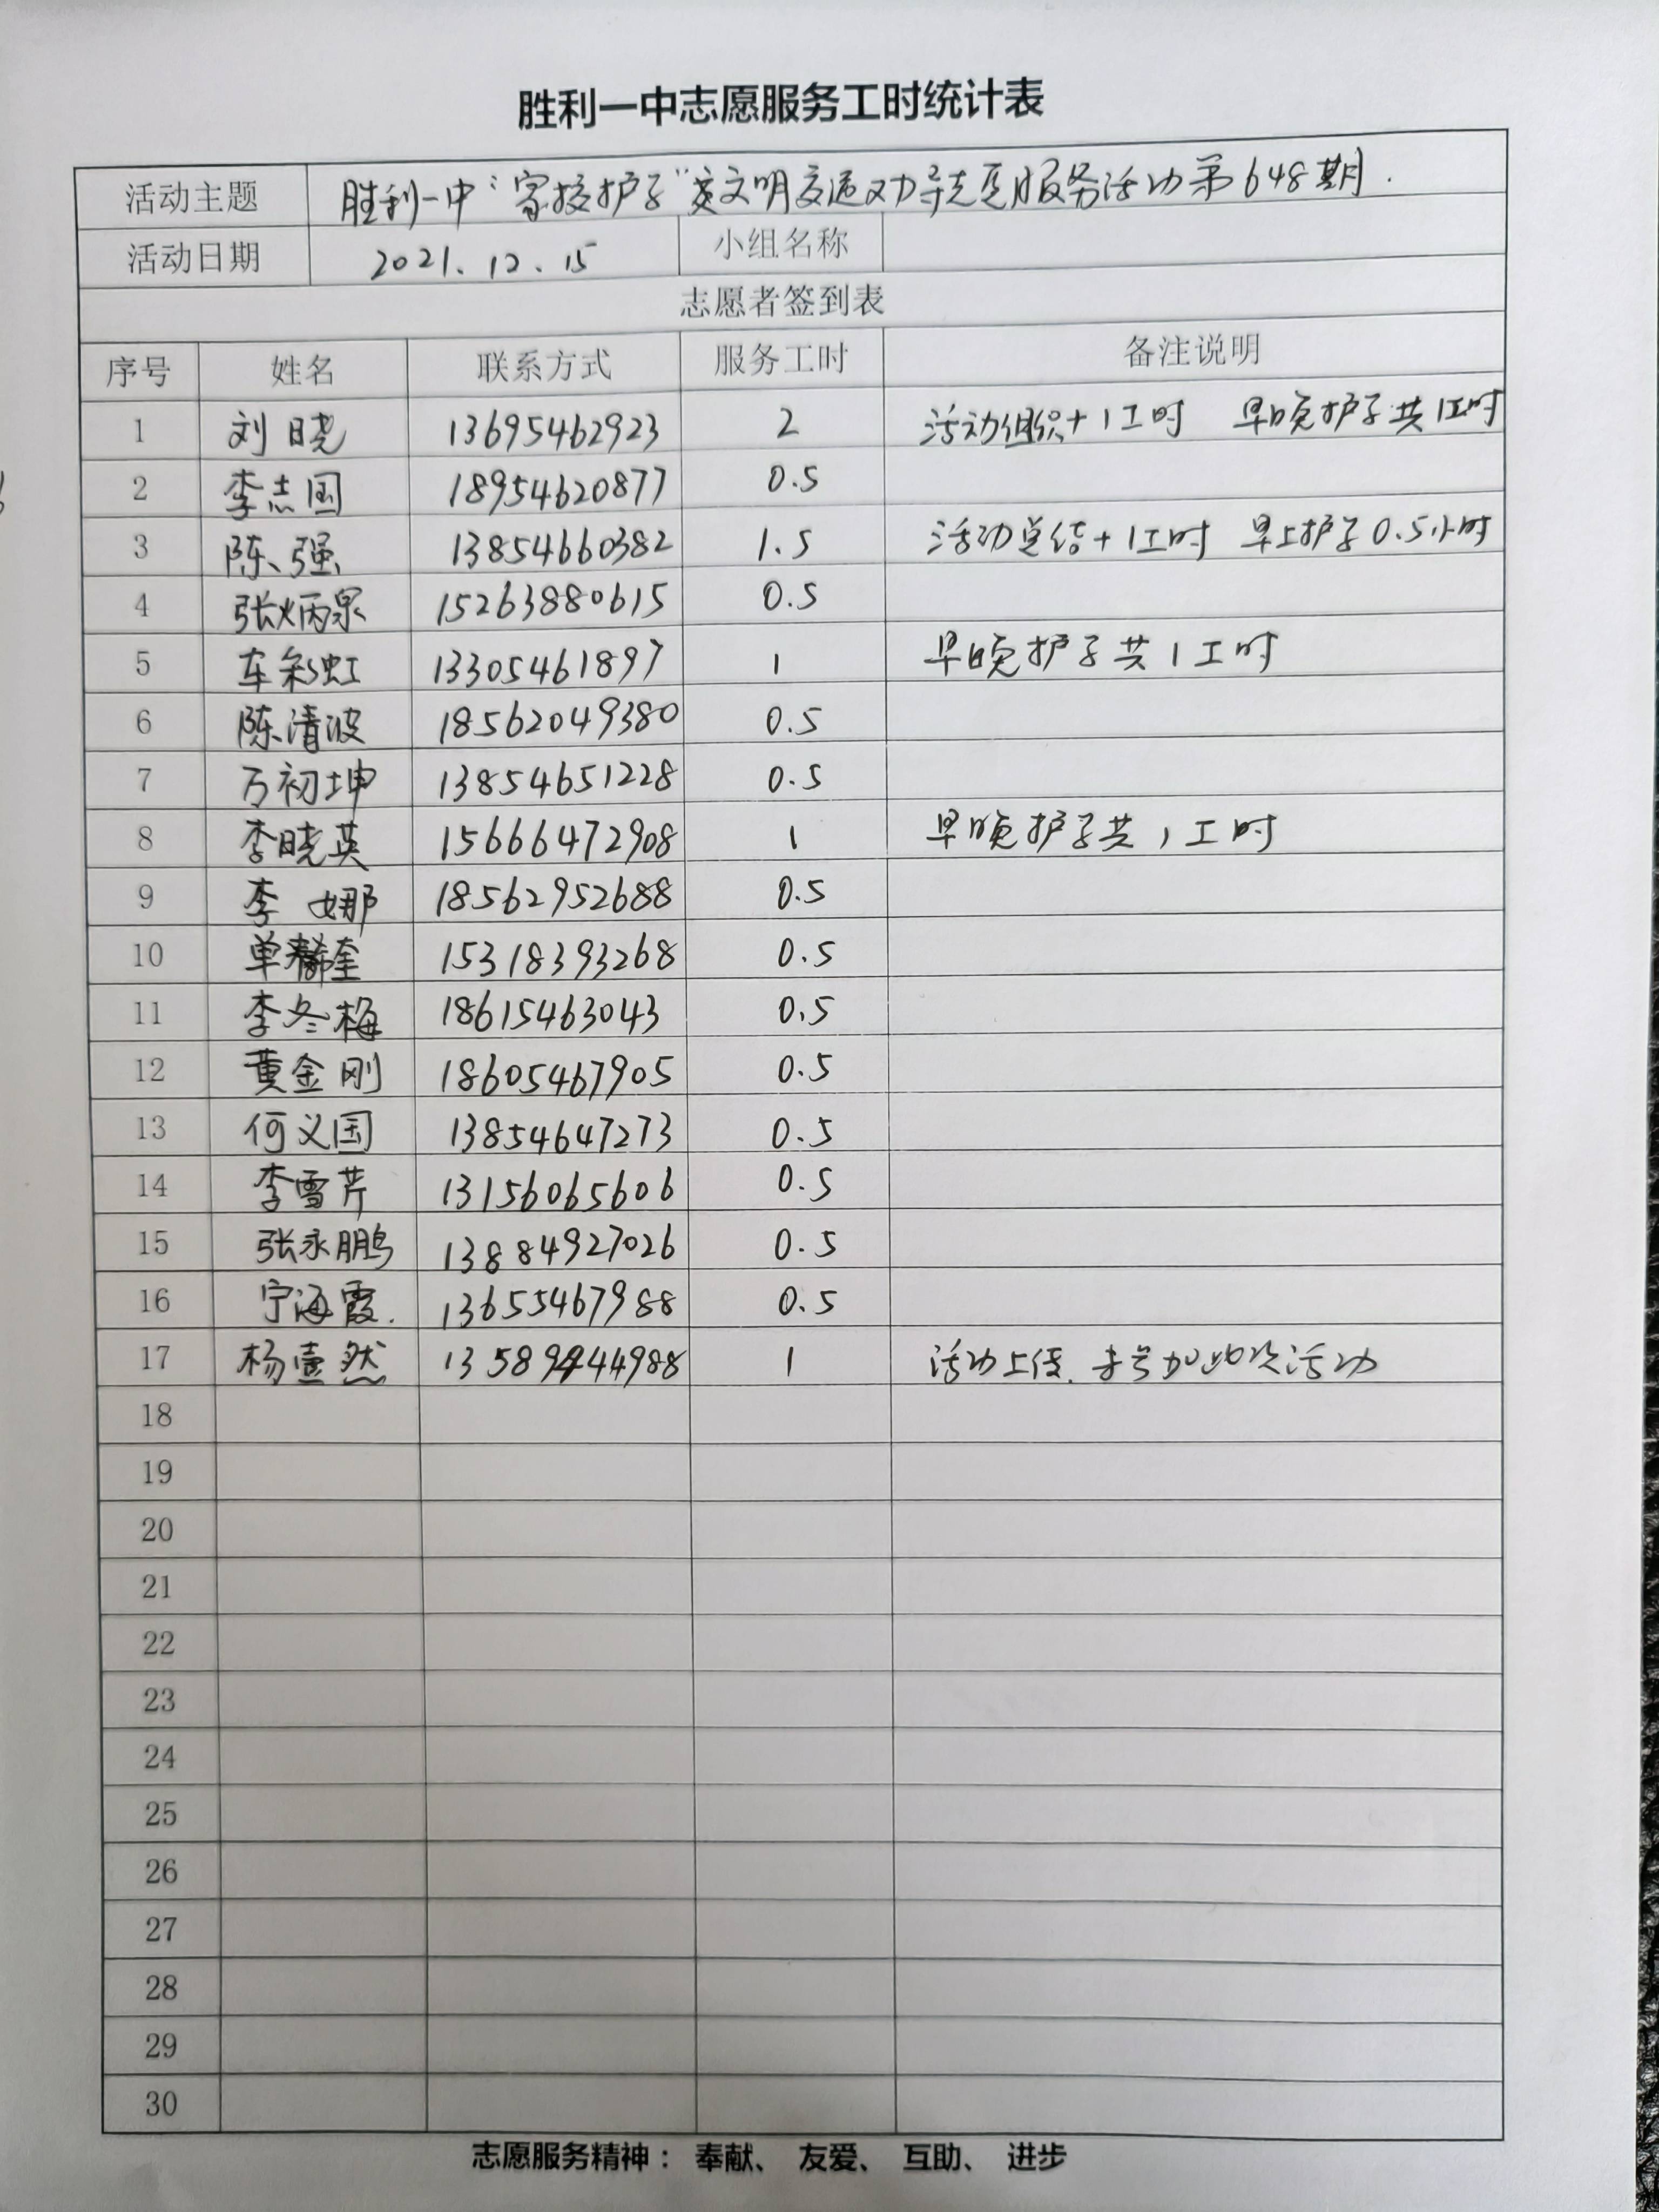 胜利一中志愿服务工时统计表
活动主题 胜利一中“家校护子”文明交通劝导志愿服务活动第648期.
活动日期 2021.12.15 小组名称
志愿者签到表
序号 姓名 联系方式 服务工时 备注说明
1 刘晓 13695462923 2 活动组织+1工时 早晚护子共1工时
2 李志国 18954620877 0.5
3 陈强 13854660382 1.5 活动总结+1工时 早上护子0.5小时
4 张炳泉 15263880615 0.5
5 车彩虹 13305461897 1 早晚护子共1工时
6 陈清波 18562049380 0.5
7 万初坤 13854651228 0.5
8 李晓英 15666472908 1 早晚护子共1工时
9 李娜 18562952688 0.5
10 单奎 15318393268 0.5
11 李冬梅 18615463043 0.5
12 黄金刚 18605467905 0.5
13 何义国 13854647273 0.5
14 李雪芹 13156065606 0.5
15 张永鹏 13884927026 0.5
16 宁海霞. 13655467988 0.5
17 杨壹然 1 活动上传. 未参加此次活动
18
19
20
21
22
23
24
25
26
27
28
29
30
志愿服务精神： 奉献、 友爱、 互助、 进步